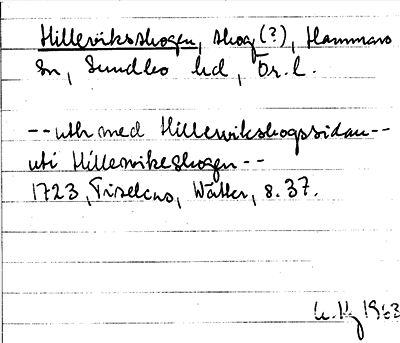 Hillerviksskogen, skog (?), Hammars
sn, Sundbo hd, Ör. l.
-- uth med Hillerwikskogssidan --
uti Hillerwikeskogen --
1723, Tiselius, Wätter, s. 37.
1963